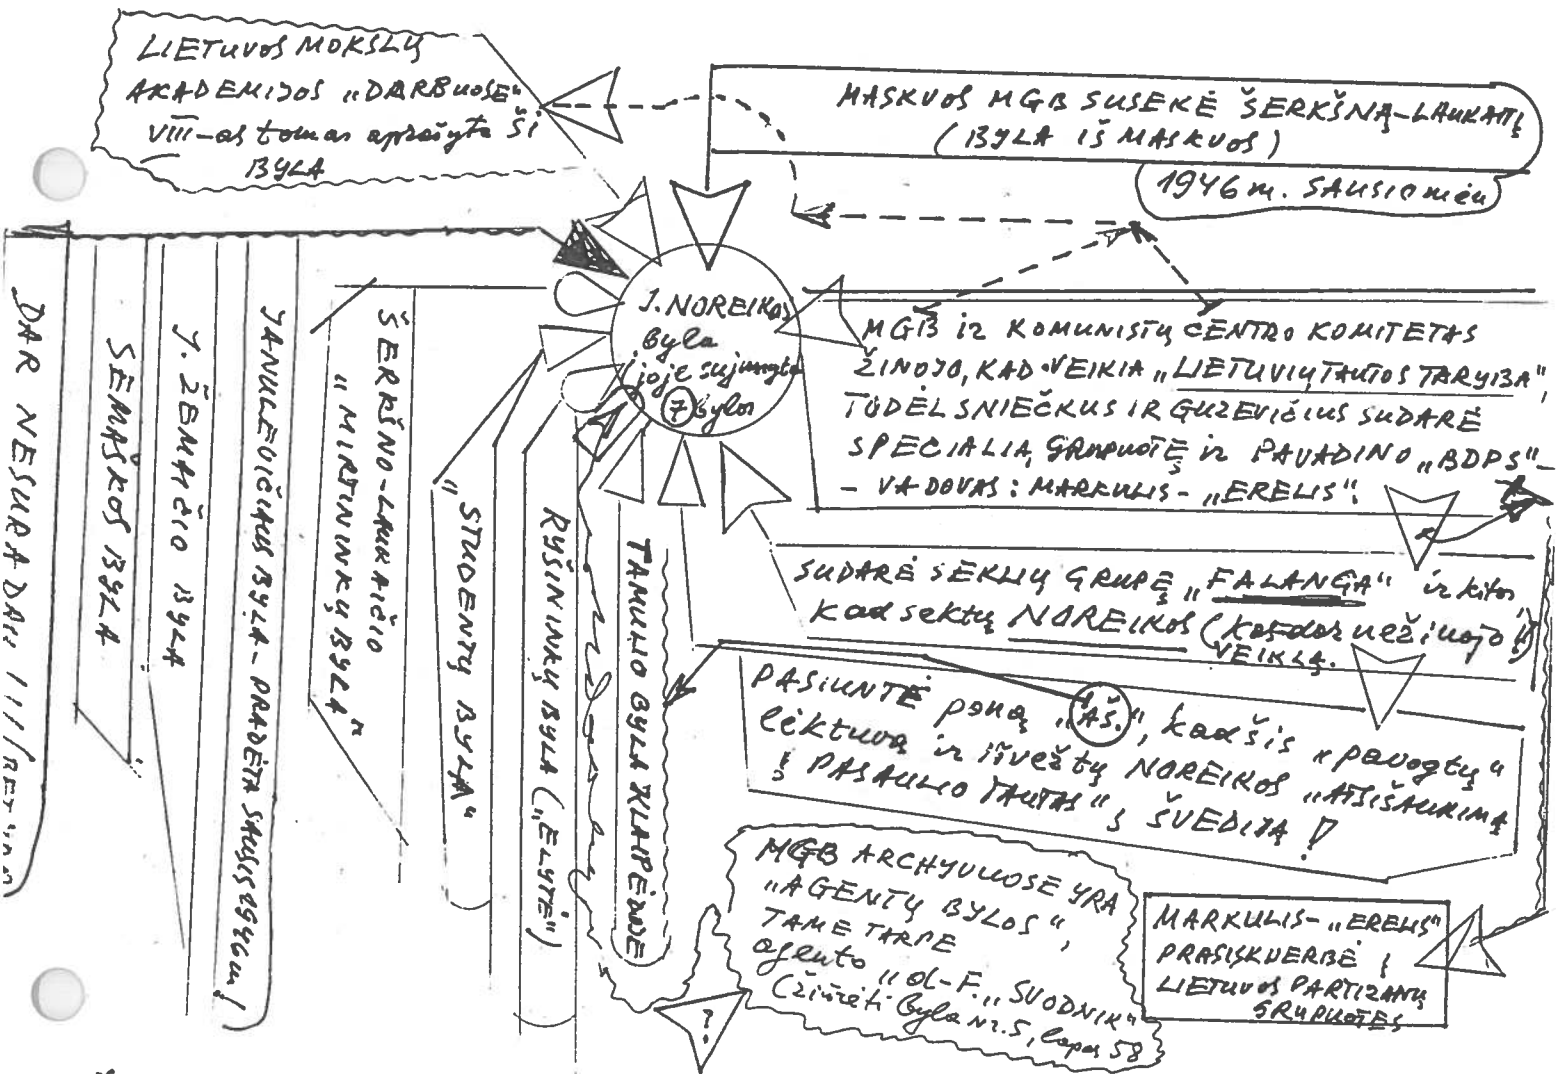 LIETUVOS MOKSLŲ
AKADEMIJOS „DARBUOSE“
VIII-as tomas aprašyta ši
BYLA
MASKVOS MGB SUSEKĖ ŠERKŠNĄ-LAUKAITĮ
(BYLA IŠ MASKVOS)
1946 m. SAUSIO mėn
J. NOREIKOS
byla
joje sujungta
7 bylos
MGB ir KOMUNISTŲ CENTRO KOMITETAS
ŽINOJO, KAD VEIKIA „LIETUVIŲ TAUTOS TARYBA“,
TODĖL SNIEČKUS IR GUZEVIČIUS SUDARĖ
SPECIALIĄ GRUPUOTĘ ir PAVADINO „BDPS“ –
– VADOVAS: MARKULIS - „ERELIS“.
SUDARĖ SEKLIŲ GRUPĘ „FALANGA“ ir kitos
kad sektų NOREIKOS (kos dar nežinojo!)
VEIKLĄ.
PASIUNTĖ poną „AŠ.“, kad šis „pavogtų“
lėktuvą ir išvežtų NOREIKOS „ATSIŠAUKIMĄ
Į PASAULIO TAUTAS“ Į ŠVEDIJĄ!
MGB ARCHYVUOSE YRA
„AGENTŲ BYLOS“,
TAME TARPE
agento „d-F. „SVODNIK“
(žiūrėti byla nr. 5, lapas 58
?
MARKULIS - „ERELIS“
PRASISKVERBĖ Į
LIETUVOS PARTIZANŲ
GRUPUOTES
TAMULIO BYLA KLAIPĖDOJE
RYŠININKŲ BYLA („ELYTĖ“)
„STUDENTŲ BYLA“
ŠERKŠNO-LAUKAIČIO
„MIRTININKŲ BYLA“
JANULEVIČIAUS BYLA - PRADĖTA SAUSIS 1946 m!
J. ŽEMAIČIO BYLA
SĖMAŠKOS BYLA
DAR NESURADAU III